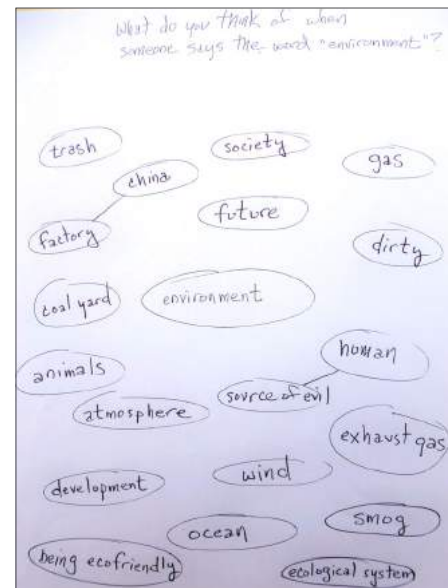 What do you think of when
someone says the word "environment"?
trash
society
gas
china
future
factory
dirty
coal yard
environment
human
animals
source of evil
atmosphere
exhaust gas
wind
development
smog
ocean
being ecofriendly
ecological system